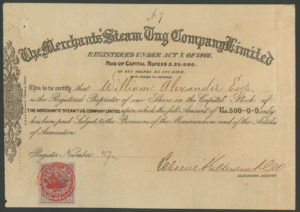 The Merchants' Steam Tug Company Limited
REGISTERED UNDER ACT X OF 1866.
PAID UP CAPITAL RUPEES 2,20,000.
This is to certify that William Alexander Esqre
is the Registered Proprietor of one Share in the Capital Stock of
THE MERCHANTS' STEAM TUG COMPANY LIMITED upon which the full Amount of Rs. 500-0-0 only
has been paid Subject to the Provisions of the Memorandum and of the Articles
of Association.
Register Number 37
MANAGING AGENTS